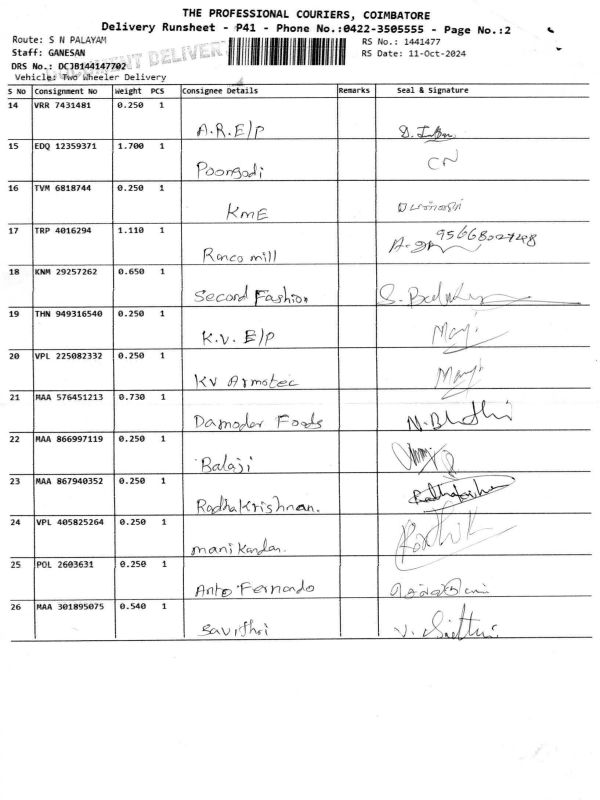 THE PROFESSIONAL COURIERS, COIMBATORE
Delivery Runsheet - P41 - Phone No.:0422-3505555 - Page No.:2
Route: S N PALAYAM
RS No.: 1441477
Staff: GANESAN
RS Date: 11-Oct-2024
DRS No.: DCJB144147702
Vehicle: Two Wheeler Delivery
S No Consignment No Weight PCS Consignee Details Remarks Seal & Signature
14 VRR 7431481 0.250 1
A.R.E/P
15 EDQ 12359371 1.700 1
Poongodi CN
16 TVM 6818744 0.250 1
KME
17 TRP 4016294 1.110 1
95668027248
Ranco mill
18 KNM 29257262 0.650 1
Second Fashion
19 THN 949316540 0.250 1
K.V. E/P Manj.
20 VPL 225082332 0.250 1
KV Armotec Manj.
21 MAA 576451213 0.730 1
Damoder Foods N.Bhathi
22 MAA 866997119 0.250 1
Balaji
23 MAA 867940352 0.250 1
RadhaKrishnan. Radhakrishnan
24 VPL 405825264 0.250 1
manikandan. Karthik
25 POL 2603631 0.250 1
Anto Fernando
26 MAA 301895075 0.540 1
Savithri